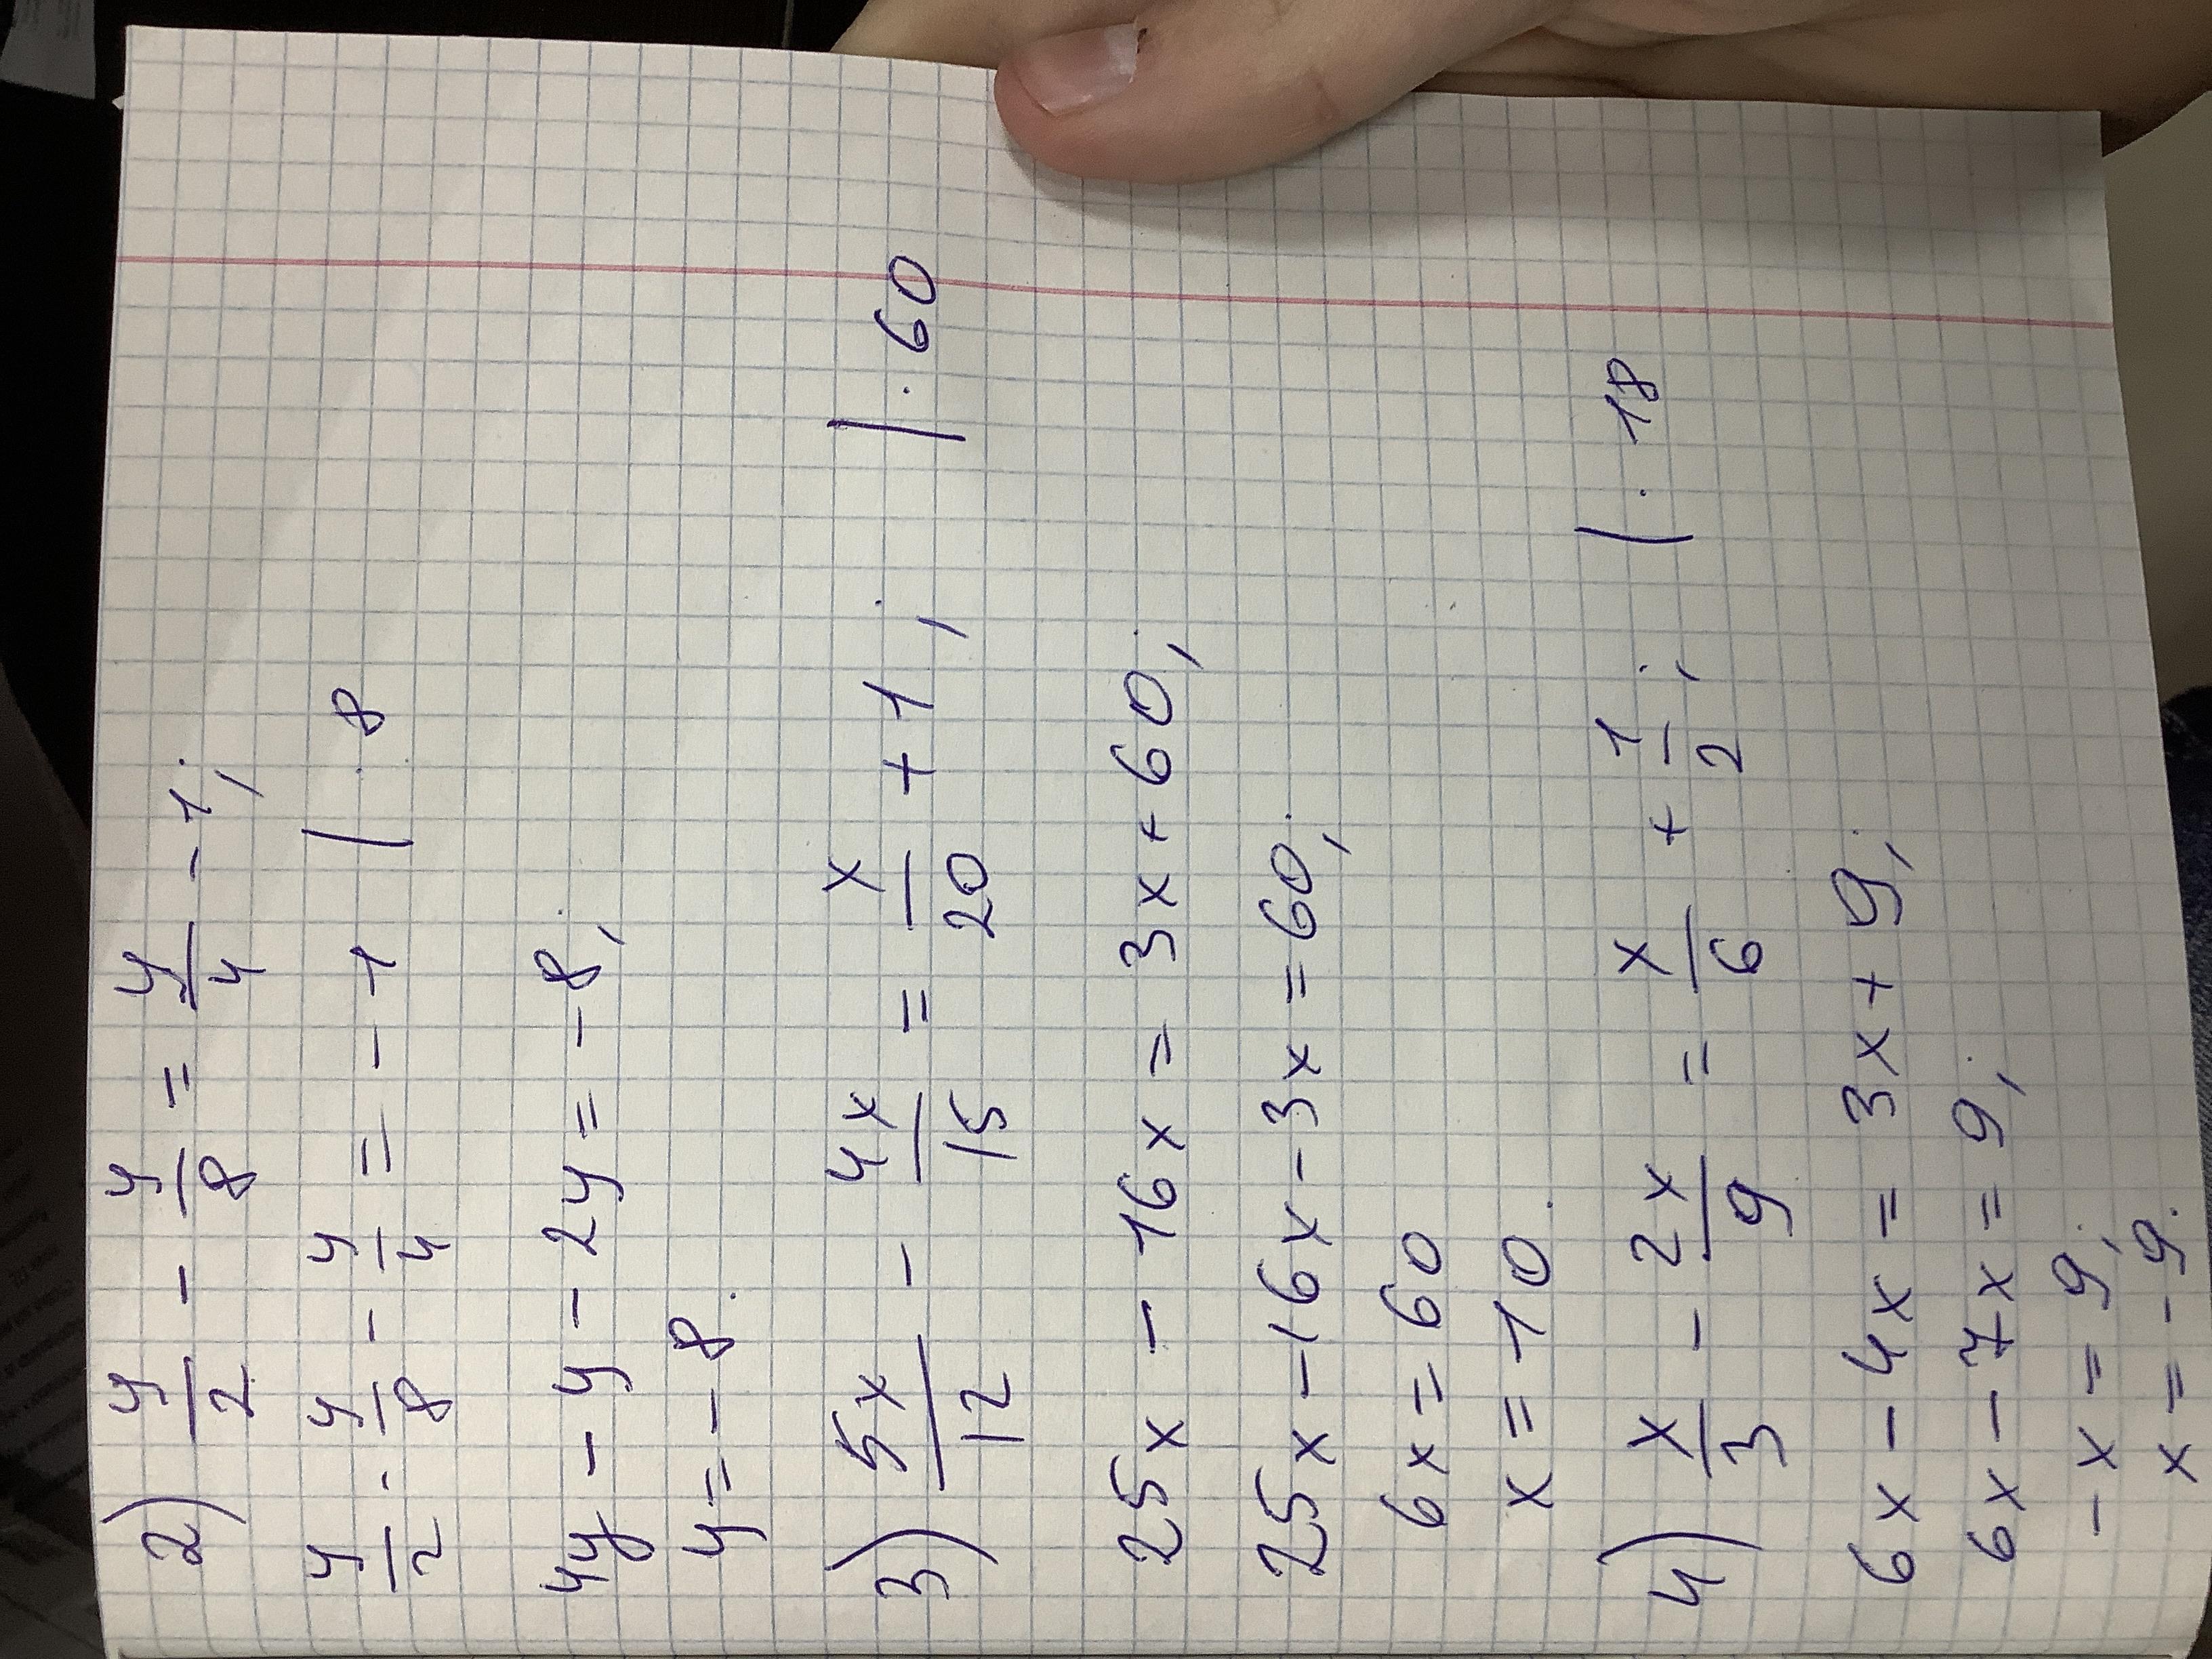 2) y/2 - y/8 = y/4 - 1;
y/2 - y/8 - y/4 = -1 | · 8
4y - y - 2y = -8;
y = -8.
3) 5x/12 - 4x/15 = x/20 + 1; | · 60
25x - 16x = 3x + 60;
25x - 16x - 3x = 60;
6x = 60
x = 10.
4) x/3 - 2x/9 = x/6 + 1/2; | · 18
6x - 4x = 3x + 9;
6x - 7x = 9;
-x = 9;
x = -9.